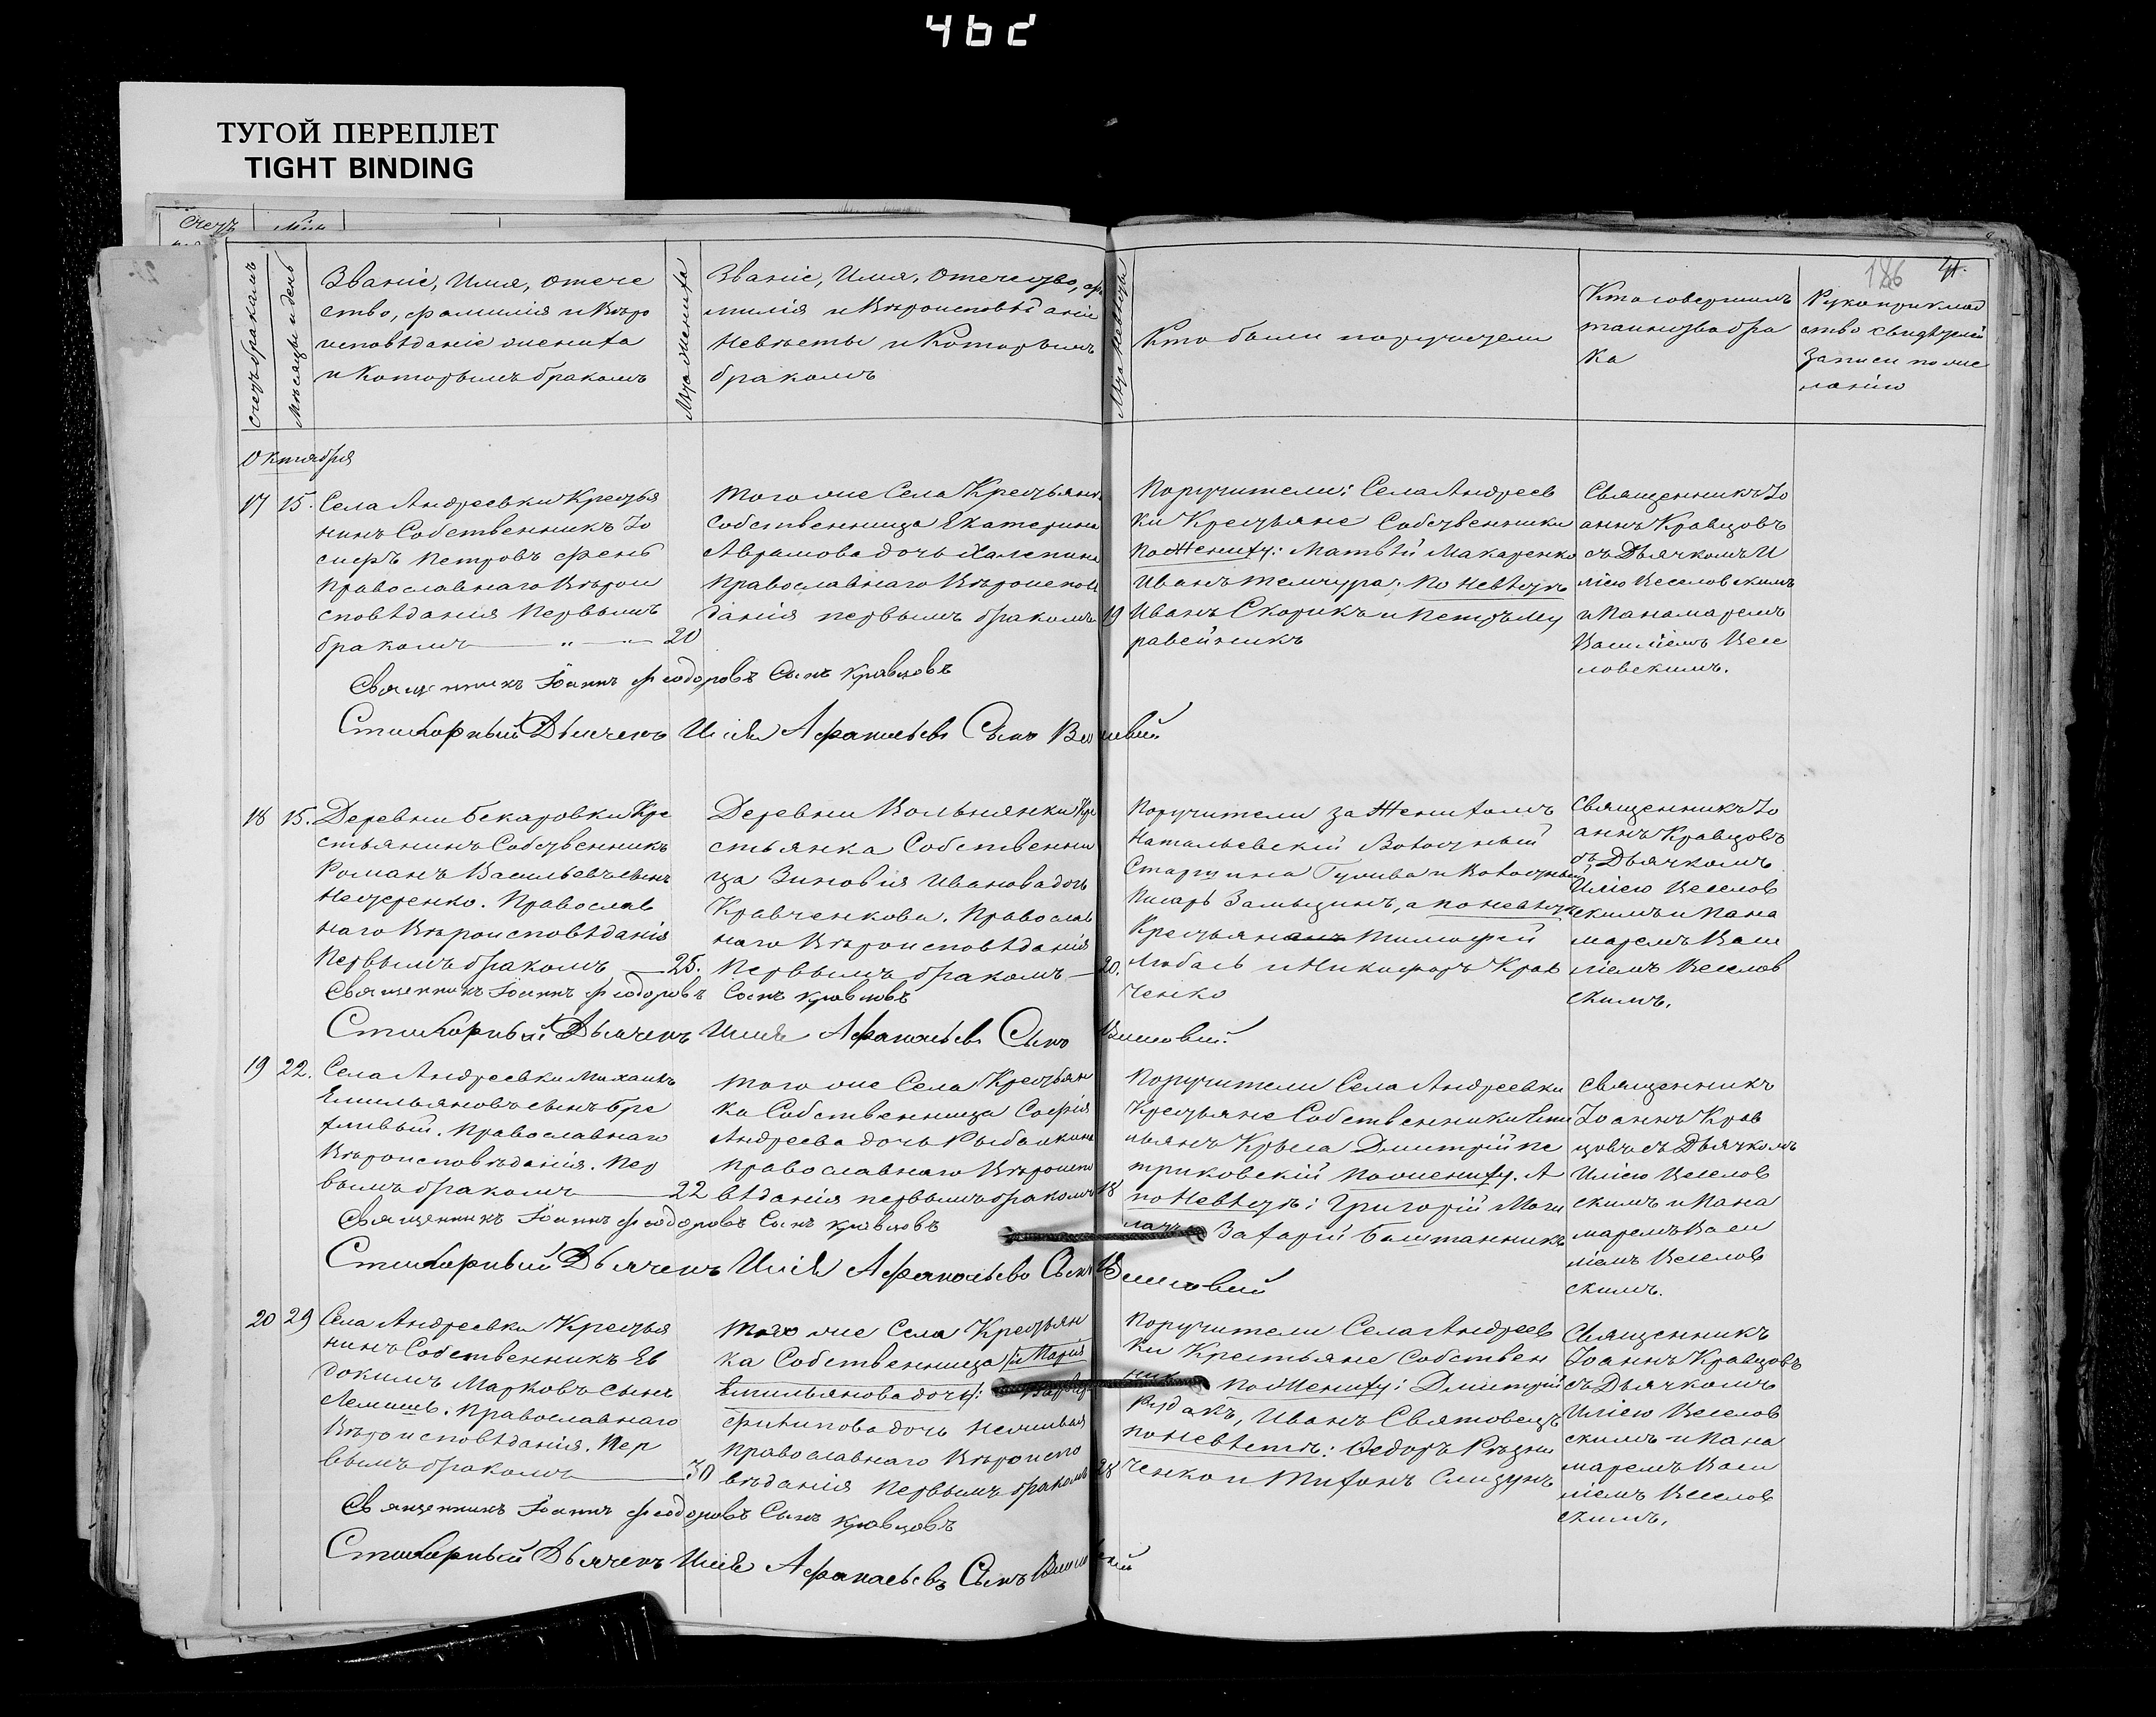 462
ТУГОЙ ПЕРЕПЛЕТ
TIGHT BINDING
Счетъ
186
Счетъ бракамъ
Мѣсяцъ и день
Званіе, Имя, Отече
ство, фамилія и Вѣро
исповѣданіе жениха
и Которымъ бракомъ
Лѣта жениха
Званіе, Имя, Отечество, фа
милія и Вѣроисповѣданіе
Невѣсты и Которымъ
бракомъ
Лѣта Невѣсты
Кто были поручители
Кто совершилъ
таинство бра
ка
Рукоприклад
ство свидѣтелей
Записи по же
ланію
Октября
17 15. Села Андреевки Крестья
нинъ Собственникъ Іо
сифъ Петровъ Фень
Православнаго Вѣрои
сповѣданія Первымъ
бракомъ 20
Того же Села Крестьянка
Собственница Екатерина
Аврамова дочь Халепина
Православнаго Вѣроиспов
данія первымъ бракомъ 19
Поручители: Села Андреев
ки Крестьяне Собственники
по Жениху: Матвѣй Макаренко
Иванъ Темчура; по Невѣстѣ
Иванъ Скорикъ и Петръ Му
равейникъ
Священникъ Іо
аннъ Кравцовъ
съ Дьячкомъ И
ліею Веселовскимъ
и Панамаремъ
Василіемъ Весе
ловскимъ.
Священникъ Іоаннъ Феодоровъ Сынъ Кравцовъ
Стихарный Дьячекъ Илія Афанасьевъ Сынъ
18 15. Деревни Бекаровки Кре
стьянинъ Собственникъ
Романъ Васильевъ сынъ
Нестеренко. Православ
наго Вѣроисповѣданія
Первымъ бракомъ 25.
Деревни Вольнянки Кре
стьянка Собственни
ца Зиновія Иванова дочь
Кравченкова. Православ
наго Вѣроисповѣданія
Первымъ бракомъ 20.
Поручители за Женихомъ
Натальевскій Волостный
Старшина Гулива и Волостный
Писарь Замыцинъ, а по невѣстѣ
Крестьяне Тимофей
Любась и Никифоръ Крав
ченко
Священникъ Іо
аннъ Кравцовъ
съ Дьячкомъ
Иліею Веселов
скимъ и Пана
маремъ Васи
ліемъ Веселов
скимъ.
Священникъ Іоаннъ Феодоровъ Сынъ Кравцовъ
Стихарный Дьячекъ Илія Афанасьевъ Сынъ
19 22. Села Андреевки Михаилъ
Емильяновъ сынъ Бре
хливый. Православнаго
Вѣроисповѣданія. Пер
вымъ бракомъ 22
Того же Села Крестьян
ка Собственница Софія
Андреева дочь Рыбалкина
Православнаго Вѣроиспо
вѣданія первымъ бракомъ 18
Поручители Села Андреевки
Крестьяне Собственники Еми
льянъ Крыса Дмитрій Пе
триковскій по жениху. А
по Невѣстѣ: Григорій Моги
Захарій Баштанникъ
Священникъ
Іоаннъ Крав
цовъ съ Дьячкомъ
Иліею Веселов
скимъ и Пана
маремъ Васи
ліемъ Веселов
скимъ.
Священникъ Іоаннъ Феодоровъ Сынъ Кравцовъ
Стихарный Дьячекъ Илія Афанасьевъ Сынъ
20 29 Села Андреевки Крестья
нинъ Собственникъ Ев
докимъ Марковъ сынъ
Лемишь. Православнаго
Вѣроисповѣданія. Пер
вымъ бракомъ 30
Того же Села Крестьян
ка Собственница Марія
Емильянова дочь:
Филипова дочь
Православнаго Вѣроиспо
вѣданія Первымъ бракомъ 28
Поручители Села Андреев
ки Крестьяне Собствен
ники по Жениху: Дмитрій
Рудакъ, Иванъ Святовецъ
по невѣстѣ: Ѳедоръ Рѣзни
ченко и Тихонъ Слизунъ
Священникъ
Іоаннъ Кравцовъ
съ Дьячкомъ
Иліею Веселов
скимъ и Пана
маремъ Васи
ліемъ Веселов
скимъ.
Священникъ Іоаннъ Феодоровъ Сынъ Кравцовъ
Стихарный Дьячекъ Илія Афанасьевъ Сынъ